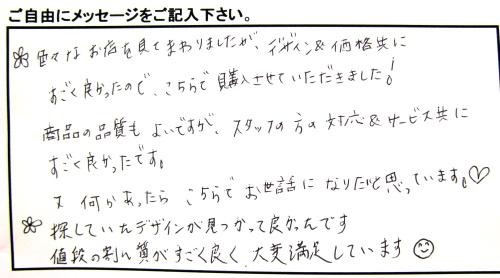 ご自由にメッセージをご記入下さい。
色々なお店を見てまわりましたが、デザイン&価格共に
すごく良かったので、こちらで購入させていただきました!
商品の品質もよいですが、スタッフの方の対応&サービス共に
すごく良かったです。
又何かあったらこちらでお世話になりたいと思っています。♡
探していたデザインが見つかって良かったんです
値段の割に質がすごく良く、大変満足しています